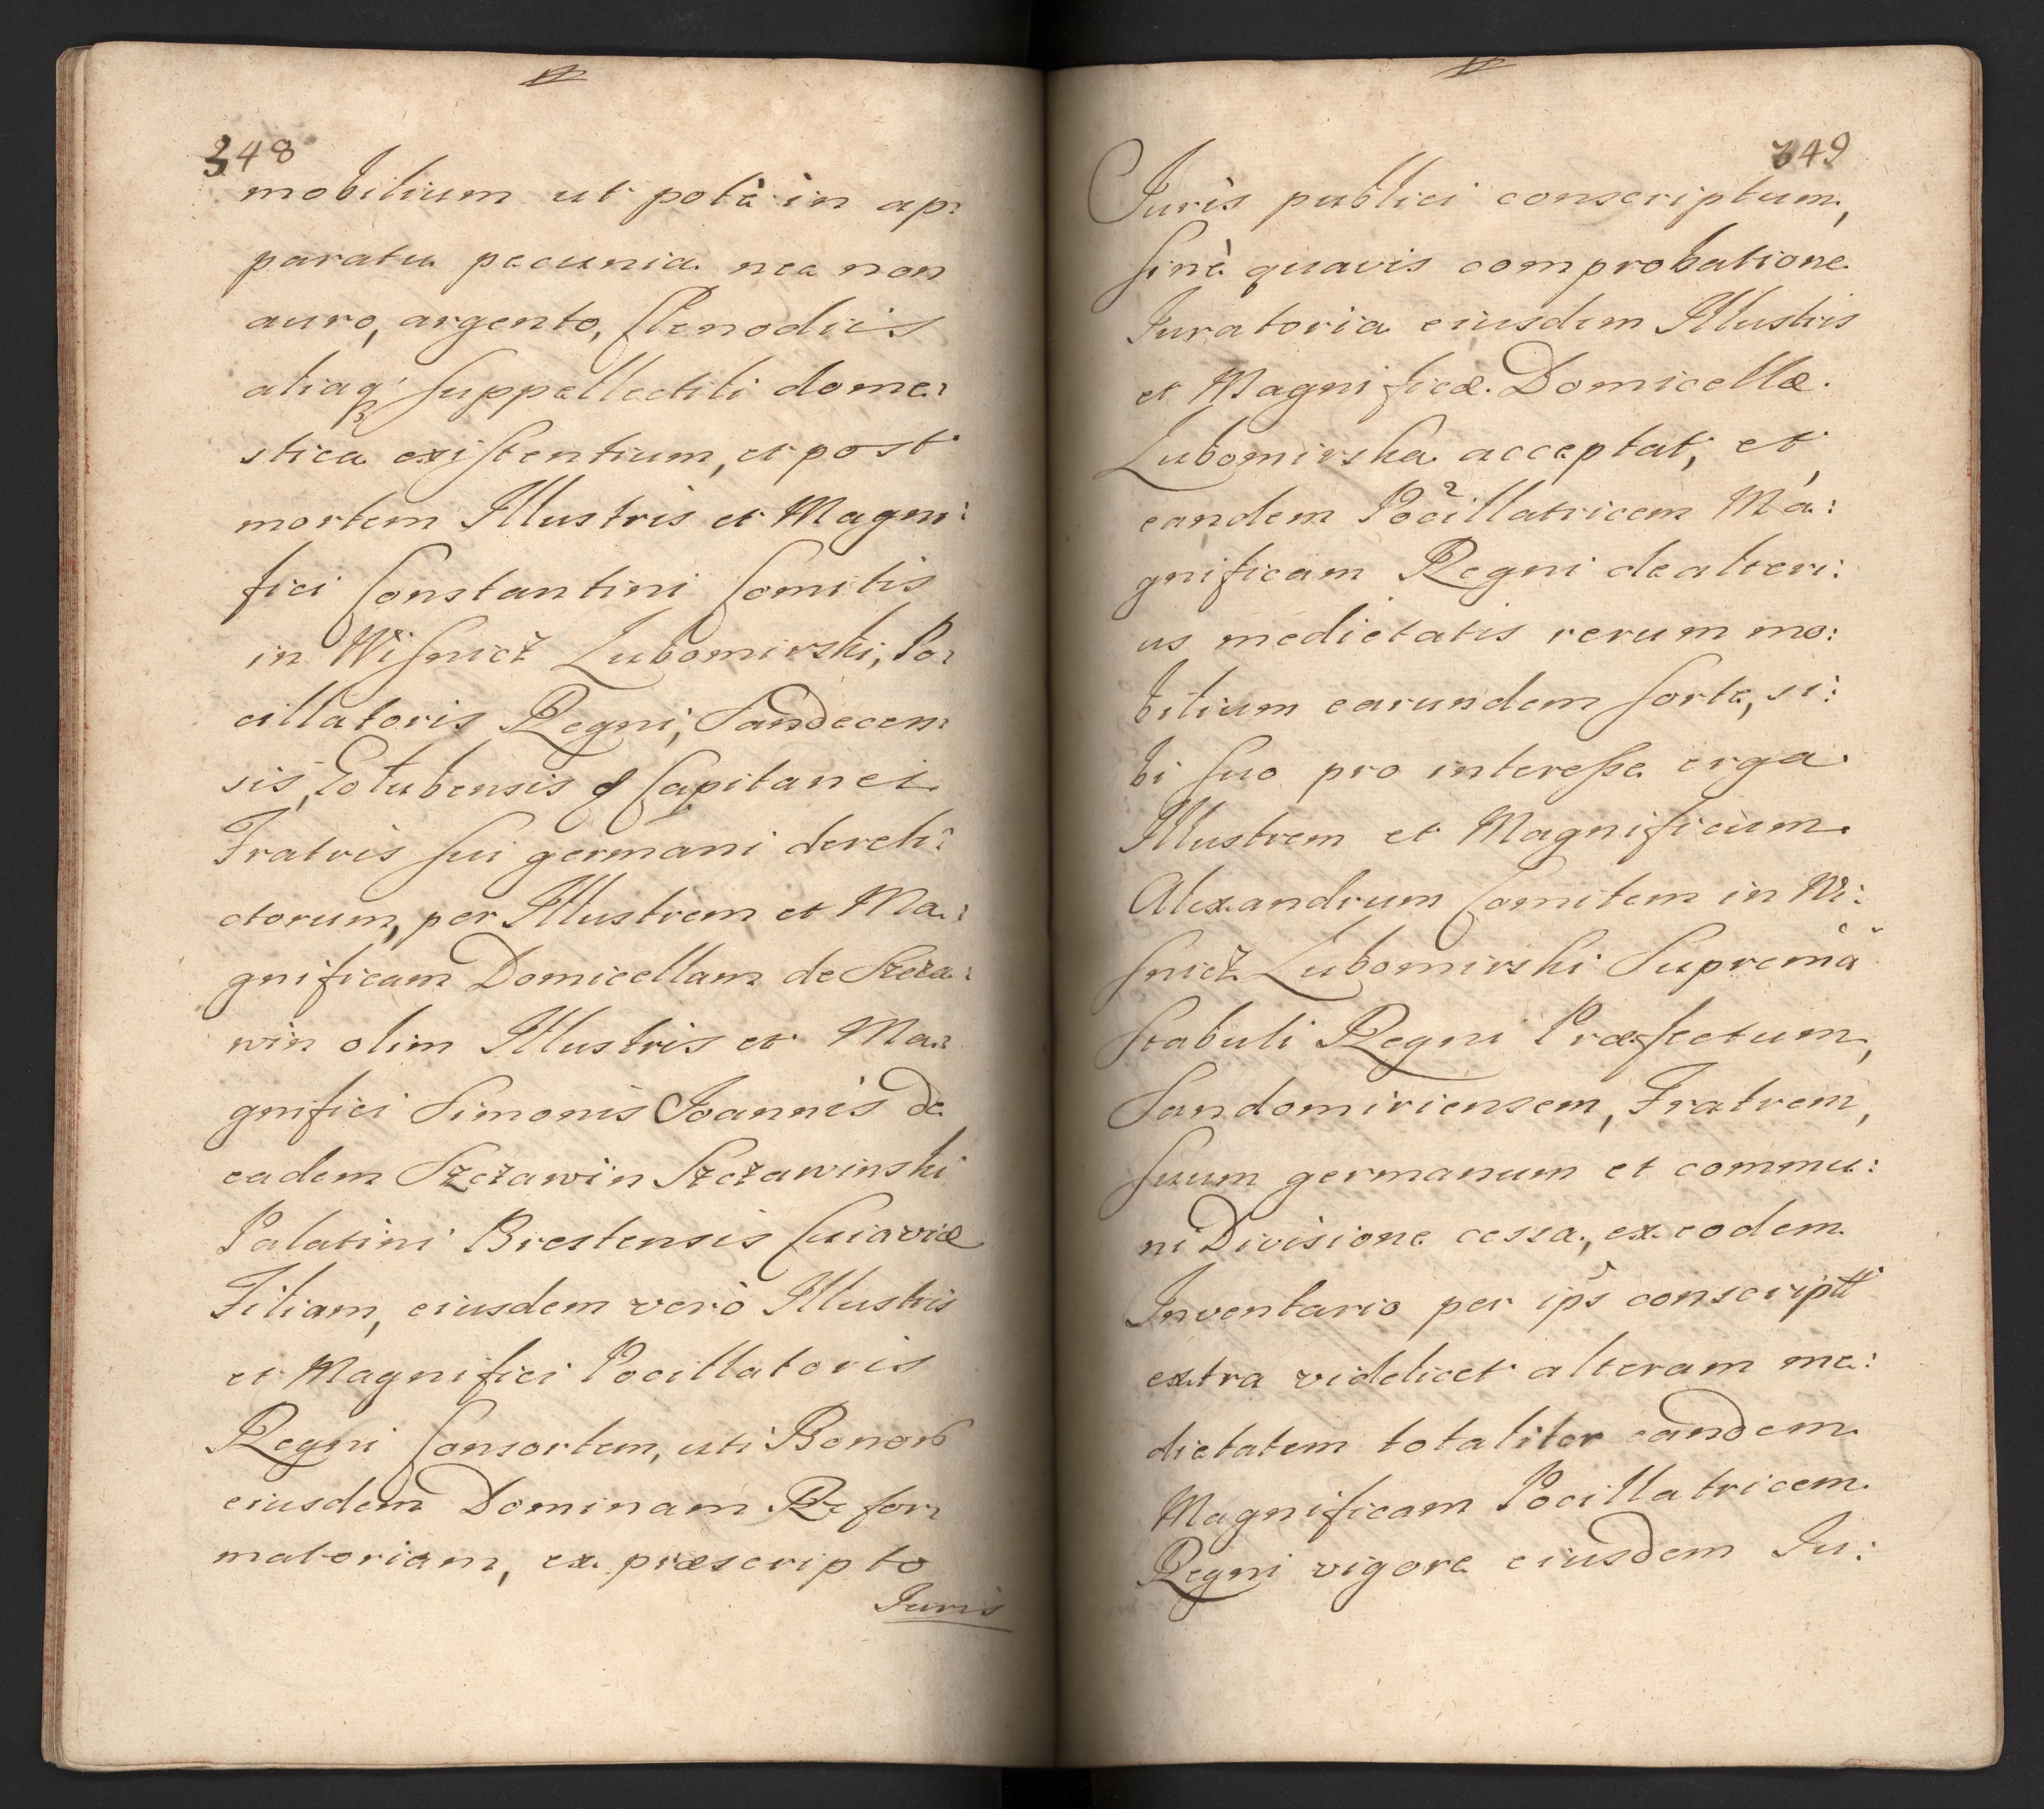 348
mobilium ut potè in ap:
paratu pecunia nec non
auro, argento, Clenodiis
aliaq́ suppellectili dome:
stica existentium, et post
mortem Illustris et Magni:
fici Constantini Comitis
in Wisnicz Lubomirski, Po:
cillatoris Regni, Sandecen:
sis, Golubensis & Capitanei
Fratris sui germani dereli:
ctorum, per Illustrem et Ma:
gnificam Domicellam de Szcza:
win olim Illustris et Ma:
gnifici Simonis Joannis de
eadem Szczawin Szczawinski
Palatini Brestensis Cuiaviæ
Filiam, eiusdem verò Illustris
et Magnifici Pocillatoris
Regni Consortem, uti Bonor
eiusdem Dominam Refor:
matoriam, ex præscripto
Juris
349
Juris publici conscriptum,
sinè quavis comprobatione
Juratoria eiusdem Illustris
et Magnificæ Domicellæ
Lubomirska acceptat, et
eandem Pocillatricem Ma:
gnificam Regni de alteri:
us medietatis rerum mo:
bilium earundem sorte, si:
bi suo pro interesse erga
Illustrem et Magnificum
Alexandrum Comitem in Wi:
snicz Lubomirski Supremũ
Stabuli Regni Præfectum,
Sandomiriensem, Fratrem,
suum germanum et commu:
ni Divisione cessa, ex eodem
Inventario per ip̃s conscriptt
extra videlicet alteram me:
dietatem totaliter eandem
Magnificam Pocillatricem
Regni vigore eiusdem Ju: